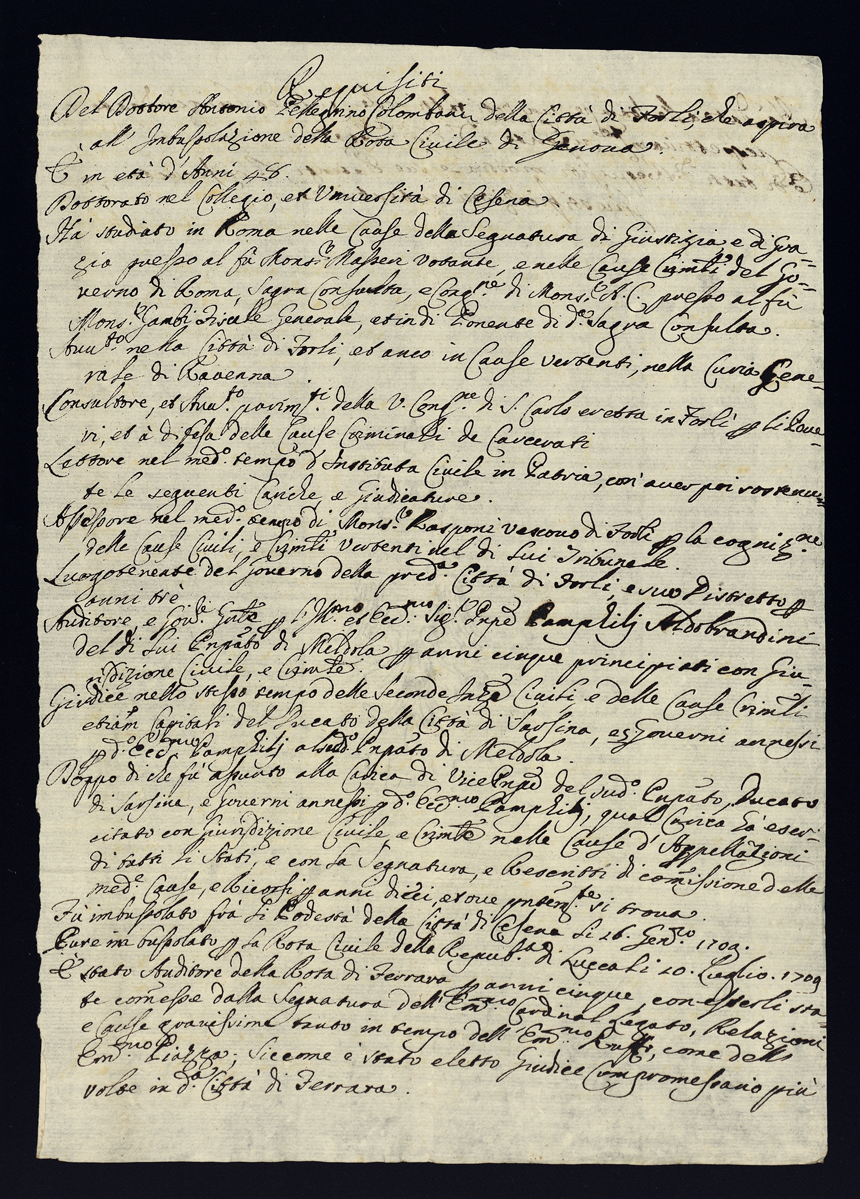 Requisiti
Del Dottore Antonio Pellegrino Colombani della Città di Forlì, che aspira
all' Imbussolazione della Rota Civile di Genova.
È in età d'Anni 48.
Dottorato nel Collegio, et Università di Cesena
Hà studiato in Roma nelle Cause della Segnatura di Giustizia, e di Gra=
zia presso al fù Mons.r Masseri Votante, e nelle Cause Crim.li del Go=
verno di Roma, Sagra Consulta, e Cong.ne di Mons.r A. C. presso al fù
Mons.r Gambi Fiscale Generale, et indi Ponente di d.a Sagra Consulta.
Avv.to nella Città di Forlì, et anco in Cause vertenti, nella Curia Gene=
rale di Ravenna
Consultore, et Avv.to parim.ti della V. Cong.ne di S. Carlo eretta in Forlì p li Pove=
ri, et à difesa delle Cause Criminali de Carcerati
Lettore nel med.o tempo d'Instituta Civile in Patria, con aver poi sostenu=
te le seguenti Cariche, e Giudicature.
Assessore nel med.o tempo di Mons.r Rasponi Vescovo di Forlì p la cogniz.ne
delle Cause Civili, e Crim.li vertenti nel di Lui Tribunale.
Luogotenente del Governo della pred.a Città di Forlì, e suo Distretto p
anni trè
Auditore, e Gov.re Gnle p l'Ill.mo et Ecc.mo Sig.r Pnpe Pamphilj Aldobrandini
del di Lui Pnpato di Meldola p anni cinque principiati con Giu=
risdizione Civile, e Crimle.
Giudice nello stesso tempo delle Seconde Inze Civili, e delle Cause Crimli
etiam Capitali del Ducato della Città di Sarsina, e Governi annessi
p d.o Ecc.mo Pamphilj al sud.o Pnpato di Meldola.
Doppo di che fù assunto alla Carica di Vice Pnpe del sud.o Pnpato, Ducato
di Sarsina, e Governi annessi p d.o Ecc.mo Pamphilj, qual Carica hà eser=
citato con Giurisdizione Civile, e Crimle nelle Cause d'Appellazioni
di tutti li Stati, e con la Segnatura, e Rescritti di com̃issione delle
med.e Cause, e Ricorsi p anni dieci, et ove pntem.te si trova.
Fù imbussolato frà li Podestà della Città di Cesena li 26. Gen.ro 1709.
Pure imbussolato p la Rota Civile della Repub.ca di Lucca li 20. Luglio. 1709
È stato Auditore della Rota di Ferrara p anni cinque, con esserli sta=
te com̃esse dalla Segnatura dell' Em.mo Cardinal Legato, Relazioni
e Cause gravissime tanto in tempo dell' Em.mo Ruffi, come dell'
Em.mo Piazza; Siccome è stato eletto Giudice Compromessario più
volte in d.a Città di Ferrara.